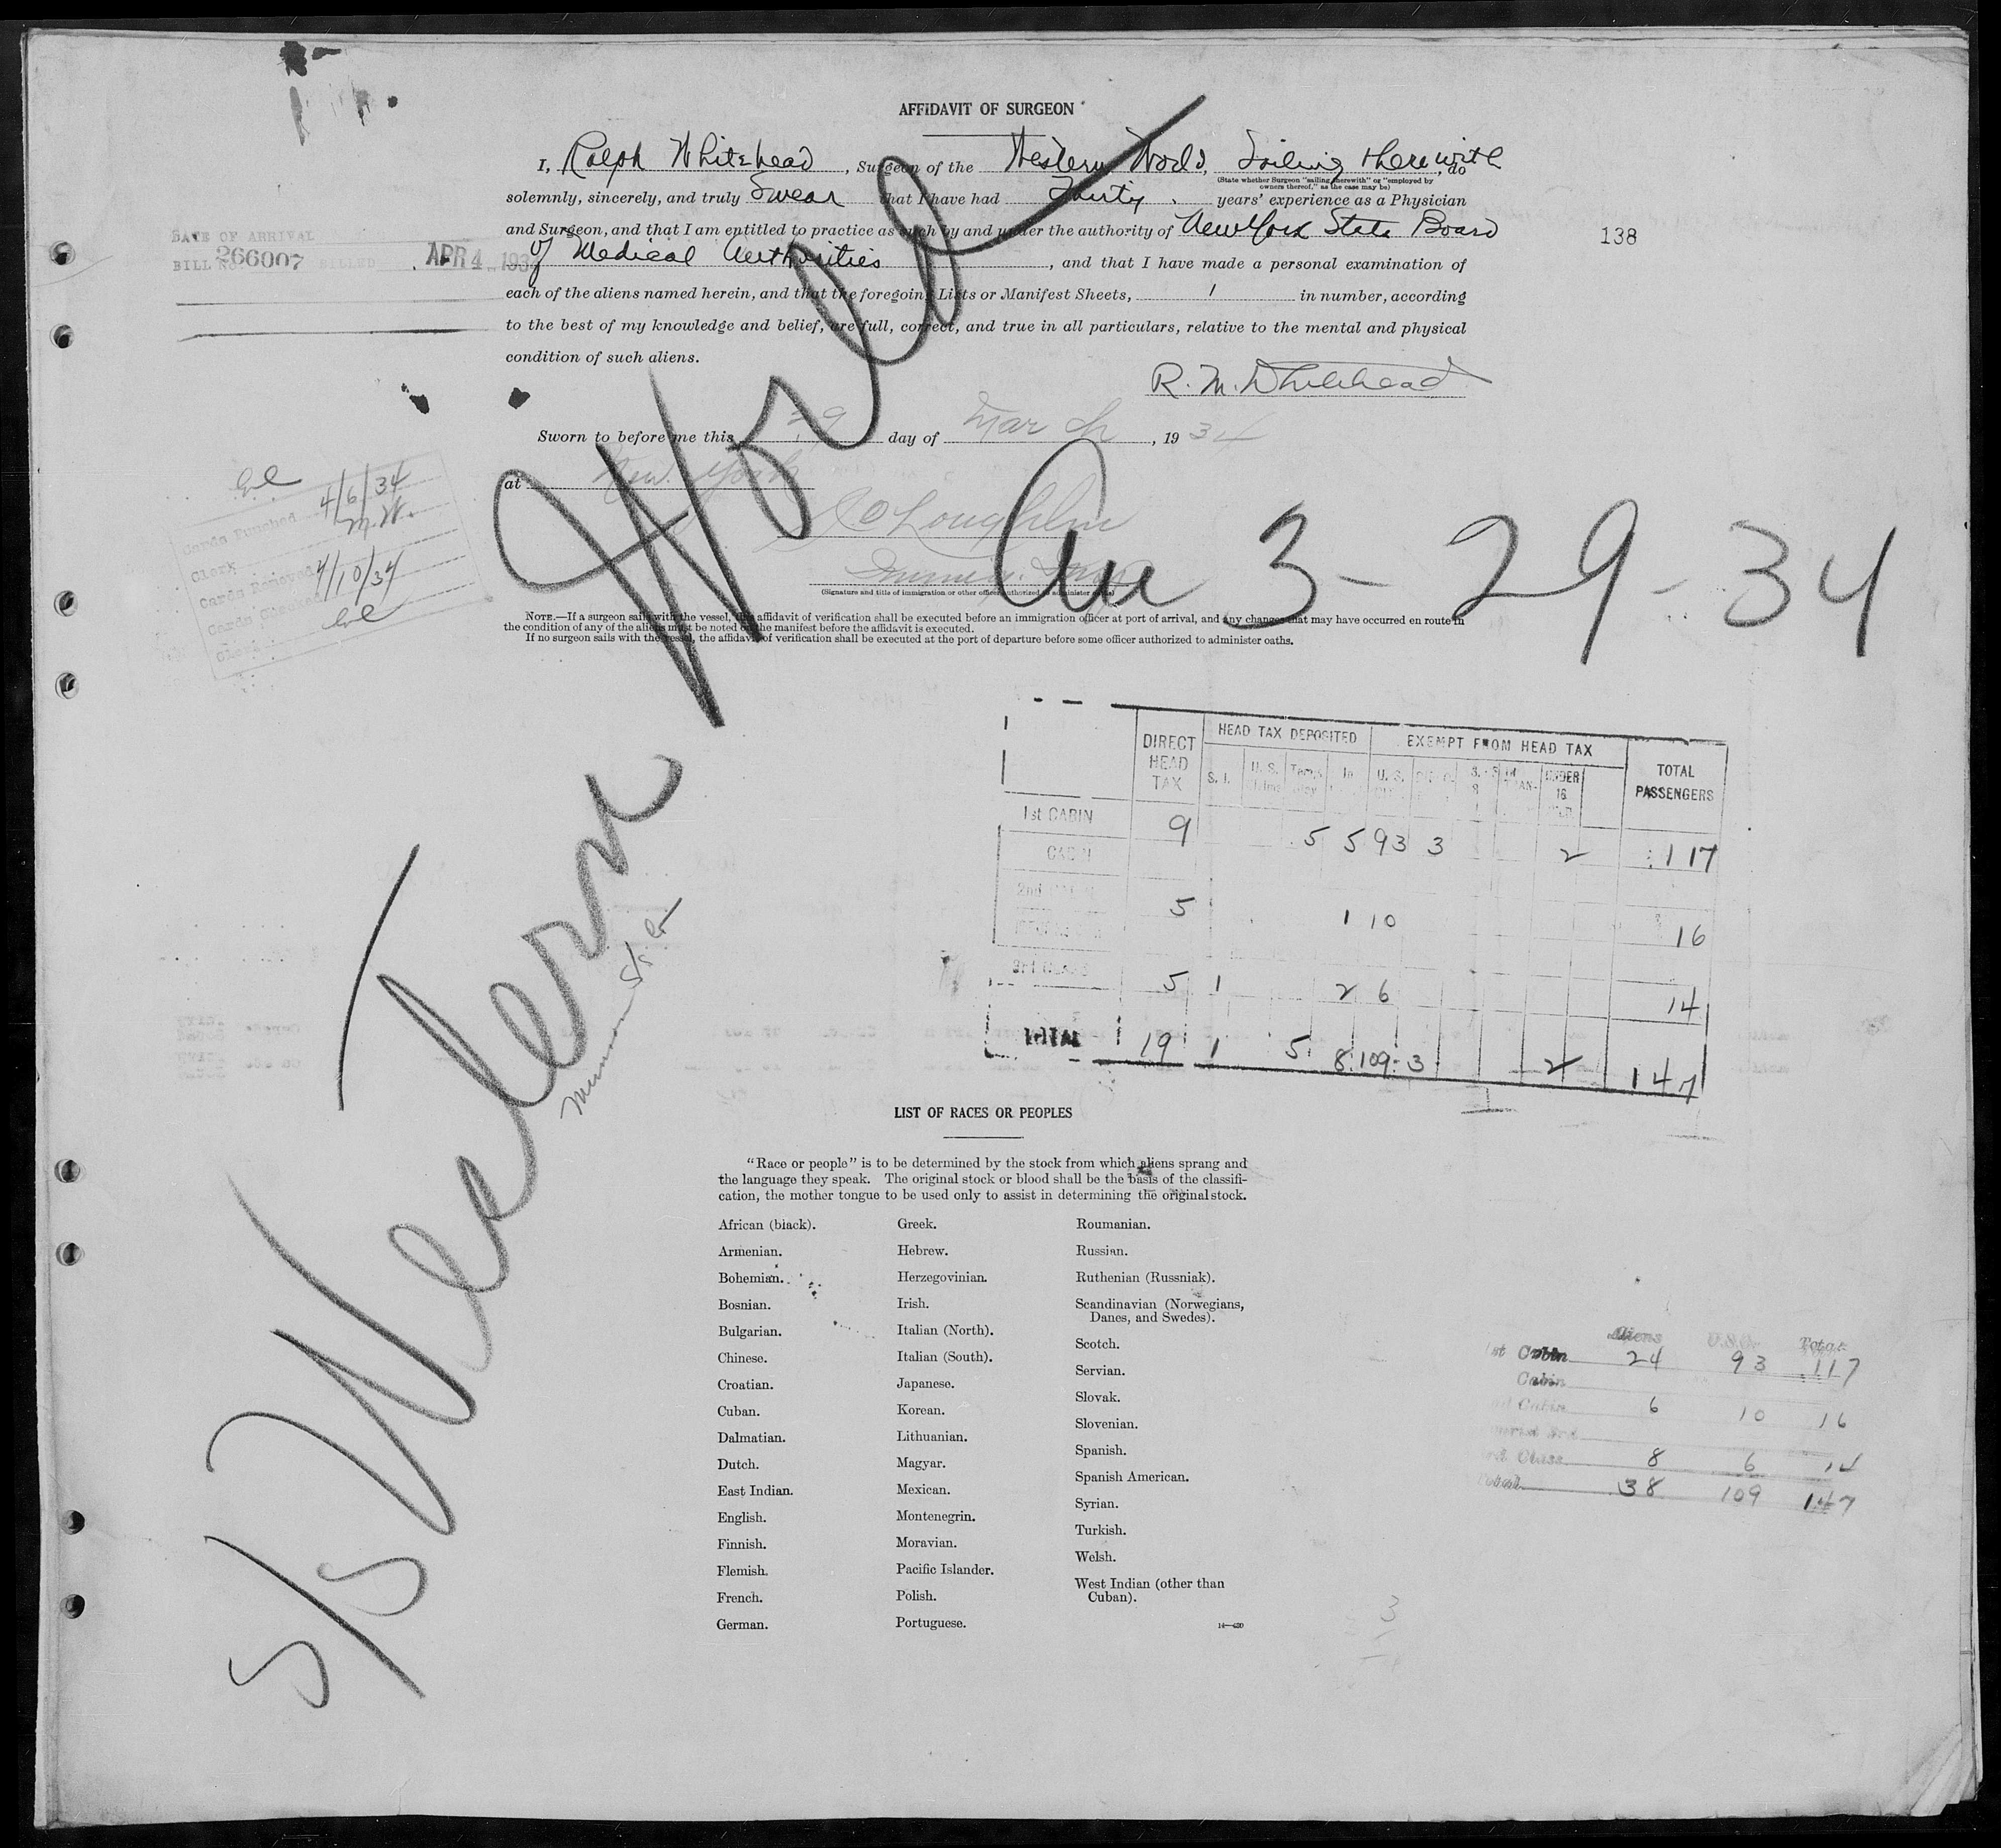 AFFIDAVIT OF SURGEON
I, Ralph Whitehead, Surgeon of the Western World, Sailing therewith, do
(State whether Surgeon "sailing therewith" or "employed by
owners thereof," as the case may be)
solemnly, sincerely, and truly Swear that I have had Thirty years' experience as a Physician
and Surgeon, and that I am entitled to practice as such by and under the authority of New York State Board
of Medical Authorities, and that I have made a personal examination of
each of the aliens named herein, and that the foregoing Lists or Manifest Sheets, 1 in number, according
to the best of my knowledge and belief, are full, correct, and true in all particulars, relative to the mental and physical
condition of such aliens.
R. M. Whitehead
138
DATE OF ARRIVAL
BILL NO. 266007 BILLED APR 4 1934
Sworn to before me this 29 day of March, 1934
at New York
(Signature and title of immigration or other officer authorized to administer oaths)
Cards Punched 4/6/34
Clerk M.W.
Cards Removed 4/10/34
NOTE.—If a surgeon sails with the vessel, this affidavit of verification shall be executed before an immigration officer at port of arrival, and any changes that may have occurred en route in
the condition of any of the aliens must be noted on the manifest before the affidavit is executed.
If no surgeon sails with the vessel, the affidavit of verification shall be executed at the port of departure before some officer authorized to administer oaths.
S/S Western World
Munson S/S Co
Arr 3-29-34
DIRECT HEAD TAX HEAD TAX DEPOSITED EXEMPT FROM HEAD TAX TOTAL PASSENGERS
S. I. U. S. U. S. UNDER 16
1st CABIN 9 5 5 93 3 2 117
CABIN
2nd 5 1 10 16
3rd 5 1 2 6 14
TOTAL 19 1 5 8 109 3 2 147
LIST OF RACES OR PEOPLES
"Race or people" is to be determined by the stock from which aliens sprang and
the language they speak. The original stock or blood shall be the basis of the classifi-
cation, the mother tongue to be used only to assist in determining the original stock.
African (black).
Armenian.
Bohemian.
Bosnian.
Bulgarian.
Chinese.
Croatian.
Cuban.
Dalmatian.
Dutch.
East Indian.
English.
Finnish.
Flemish.
French.
German.
Greek.
Hebrew.
Herzegovinian.
Irish.
Italian (North).
Italian (South).
Japanese.
Korean.
Lithuanian.
Magyar.
Mexican.
Montenegrin.
Moravian.
Pacific Islander.
Polish.
Portuguese.
Roumanian.
Russian.
Ruthenian (Russniak).
Scandinavian (Norwegians,
Danes, and Swedes).
Scotch.
Servian.
Slovak.
Slovenian.
Spanish.
Spanish American.
Syrian.
Turkish.
Welsh.
West Indian (other than
Cuban).
Aliens U.S.C. Total
1st Cabin 24 93 117
Cabin
Cabin 6 10 16
Class 8 6 14
Total 38 109 147
3